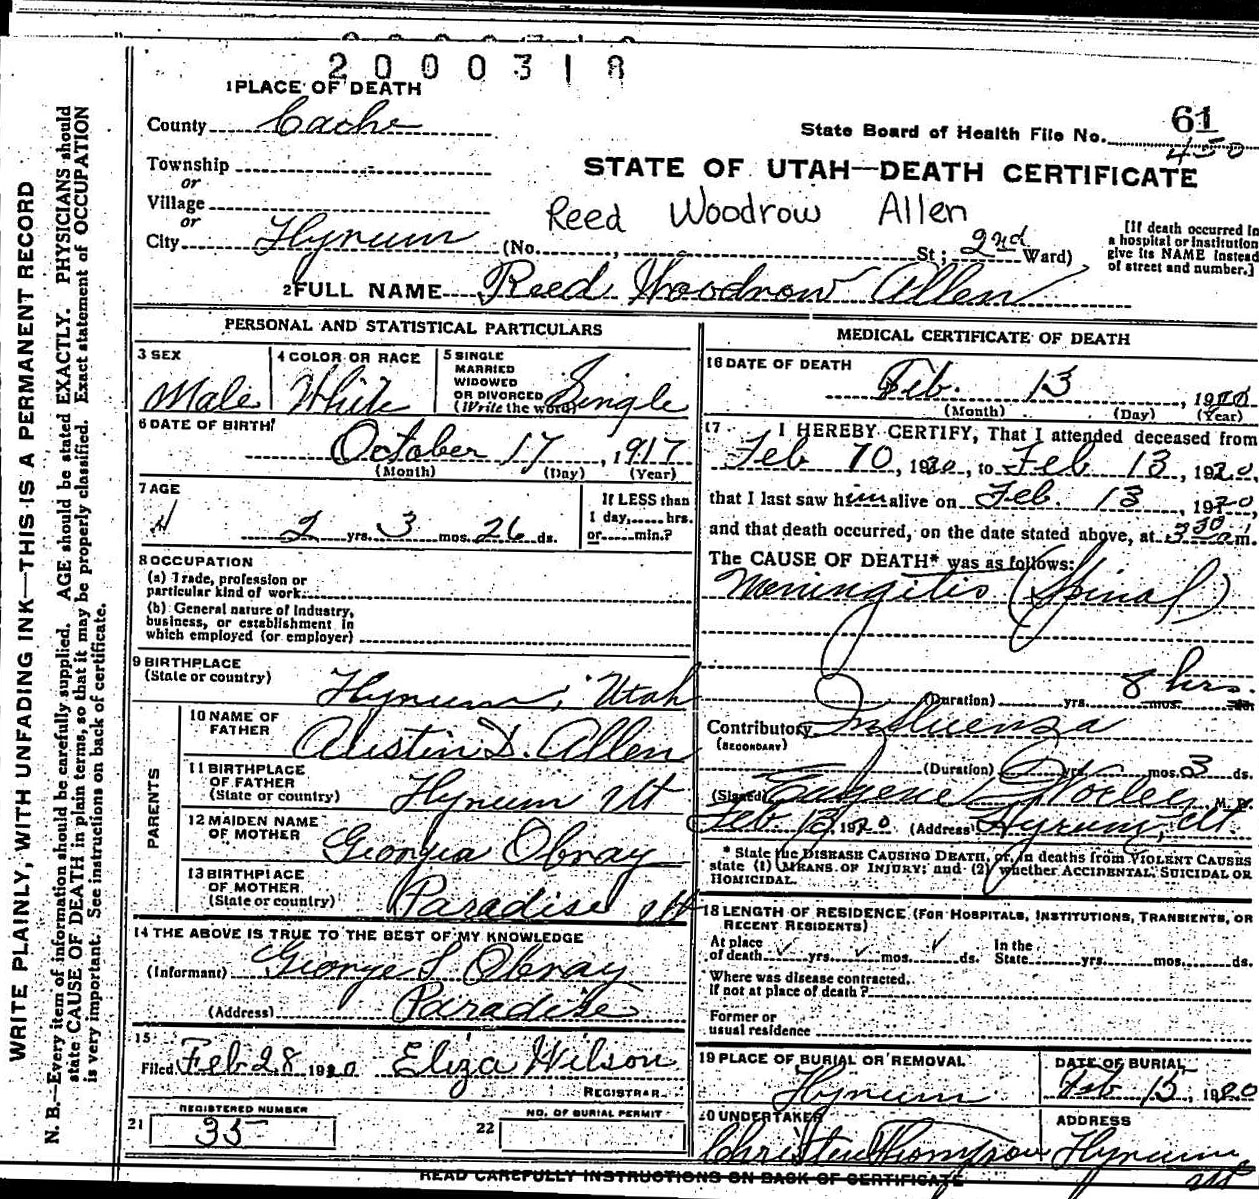 2000318
1 PLACE OF DEATH
County Cache
State Board of Health File No. 61
450
Township
or
Village
or
City Hyrum (No. , St; 2nd Ward)
STATE OF UTAH—DEATH CERTIFICATE
Reed Woodrow Allen
[If death occurred in a hospital or institution give its NAME instead of street and number.]
2 FULL NAME Reed Woodrow Allen
PERSONAL AND STATISTICAL PARTICULARS
3 SEX
Male
4 COLOR OR RACE
White
5 SINGLE
MARRIED
WIDOWED
OR DIVORCED
(Write the word)
Single
6 DATE OF BIRTH
October 17, 1917
(Month) (Day) (Year)
7 AGE
2 yrs. 3 mos. 26 ds.
If LESS than
1 day,......hrs.
or......min.?
8 OCCUPATION
(a) Trade, profession or
particular kind of work
(b) General nature of Industry,
business, or establishment in
which employed (or employer)
9 BIRTHPLACE
(State or country)
Hyrum, Utah
PARENTS
10 NAME OF
FATHER
Austin D. Allen
11 BIRTHPLACE
OF FATHER
(State or country)
Hyrum Ut
12 MAIDEN NAME
OF MOTHER
Georgia Obray
13 BIRTHPLACE
OF MOTHER
(State or country)
Paradise Ut
14 THE ABOVE IS TRUE TO THE BEST OF MY KNOWLEDGE
(Informant) George S Obray
(Address) Paradise
15
Filed Feb 28 1920 Eliza Wilson
REGISTRAR
REGISTERED NUMBER
21 35
NO. OF BURIAL PERMIT
22
MEDICAL CERTIFICATE OF DEATH
16 DATE OF DEATH
Feb. 13, 1920
(Month) (Day) (Year)
17 I HEREBY CERTIFY, That I attended deceased from
Feb 10, 1920, to Feb 13, 1920,
that I last saw him alive on Feb. 13, 1920,
and that death occurred, on the date stated above, at 3 30 a m.
The CAUSE OF DEATH* was as follows:
Meningitis (Spinal)
8 hrs.
(Duration) yrs. mos. ds.
Contributory Influenza
(SECONDARY)
(Duration) yrs. mos. 3 ds.
(Signed) Eugene Worley, M. D.
Feb 13, 1920 (Address) Hyrum, Ut.
* State the DISEASE CAUSING DEATH, or, in deaths from VIOLENT CAUSES
state (1) MEANS OF INJURY; and (2) whether ACCIDENTAL, SUICIDAL OR
HOMICIDAL.
18 LENGTH OF RESIDENCE (FOR HOSPITALS, INSTITUTIONS, TRANSIENTS, OR
RECENT RESIDENTS)
At place
of death yrs. mos. ds. In the
State yrs. mos. ds.
Where was disease contracted,
If not at place of death?
Former or
usual residence
19 PLACE OF BURIAL OR REMOVAL
Hyrum
DATE OF BURIAL
Feb 15, 1920
20 UNDERTAKER
Thompson
ADDRESS
Hyrum
Ut
READ CAREFULLY INSTRUCTIONS ON BACK OF CERTIFICATE
WRITE PLAINLY, WITH UNFADING INK—THIS IS A PERMANENT RECORD
N. B.—Every item of information should be carefully supplied. AGE should be stated EXACTLY. PHYSICIANS should
state CAUSE OF DEATH in plain terms, so that it may be properly classified. Exact statement of OCCUPATION
is very important. See instructions on back of certificate.